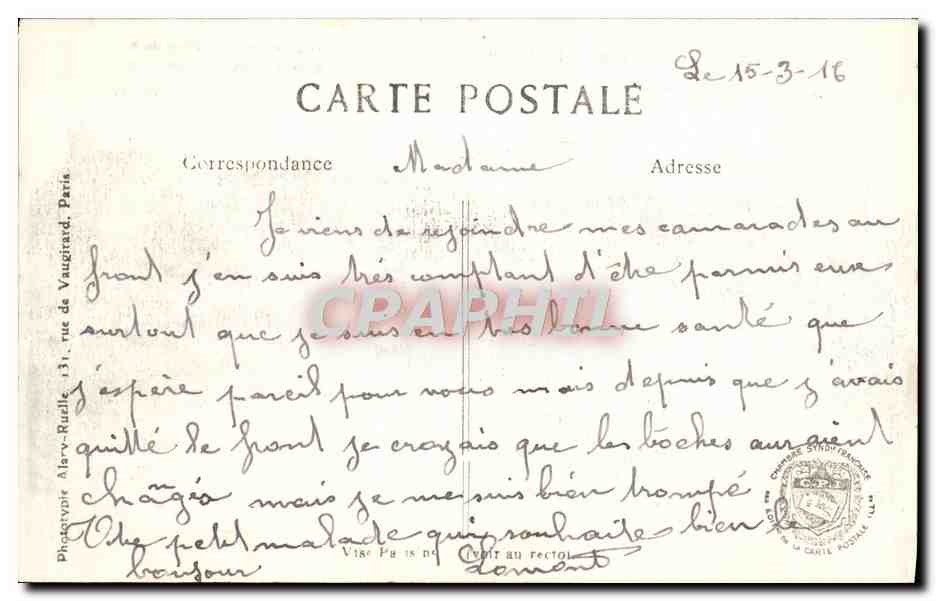 Le 15-3-16
CARTE POSTALE
Correspondance Madame Adresse
Je viens de rejoindre mes camarades au
front j'en suis très comptant d'être parmis eux
surtout que je suis en très bonne santé que
j'espère pareil pour vous mais depuis que j'avais
quitté le front je croyais que les boches auraient
changéa mais je me suis bien trompé
Vtre petit malade qui souhaite bien le
bonjour Lamont
Visé Paris no (voir au recto)
Phototypie Alary-Ruelle 131, rue de Vaugirard, Paris
CHAMBRE SYNDle FRANÇAISE
DE LA CARTE POSTALE ILLée
CPAPHIL